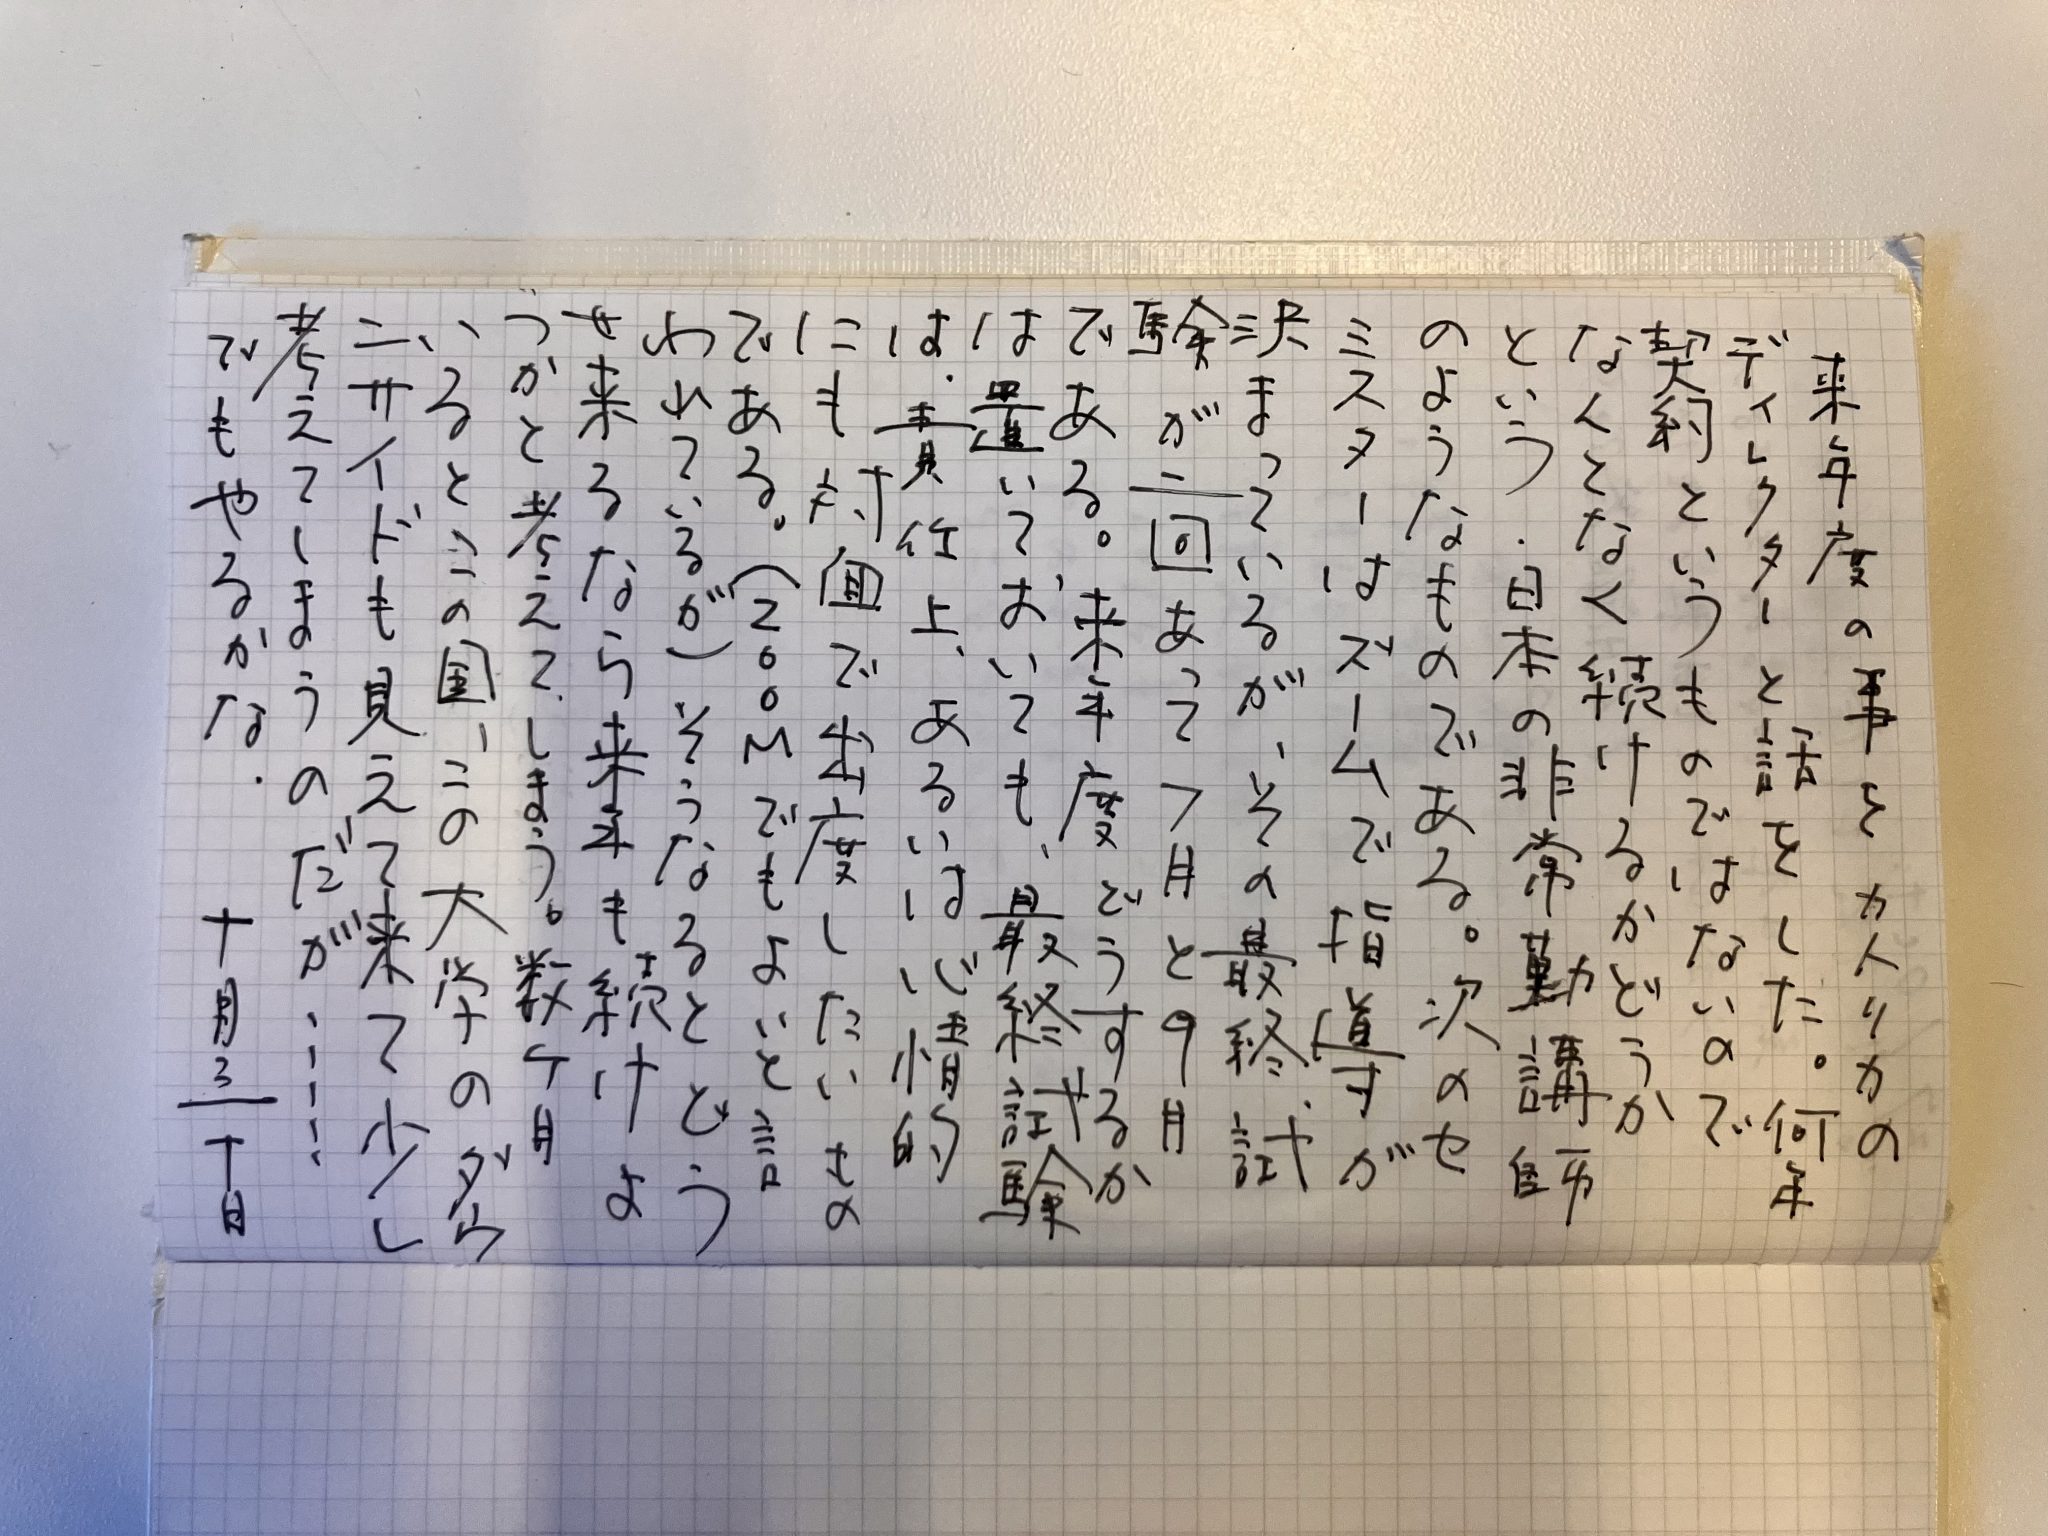 来年度の事をカメリカの
ディレクターと話をした。何年
契約というものではないので
なんとなく続けるかどうか
という、日本の非常勤講師
のようなものである。次のセ
ミスターはズームで指導すが
決まっているが、その最終試
験が二回あって7月と9月
である。来年度どうするか
は置いておいても、最終試験
は、責任上、あるいは心情的
にも対面で出席したいもの
である。(ZOOMでもよいと言
われているが)そうなるとどう
せ来るなら来年も続けよ
うかと考えてしまう。数ヶ月
いるとこの国、この大学のダウ
ンサイドも見えて来て少し
考えてしまうのだが……
でもやるかな。
十月三十日